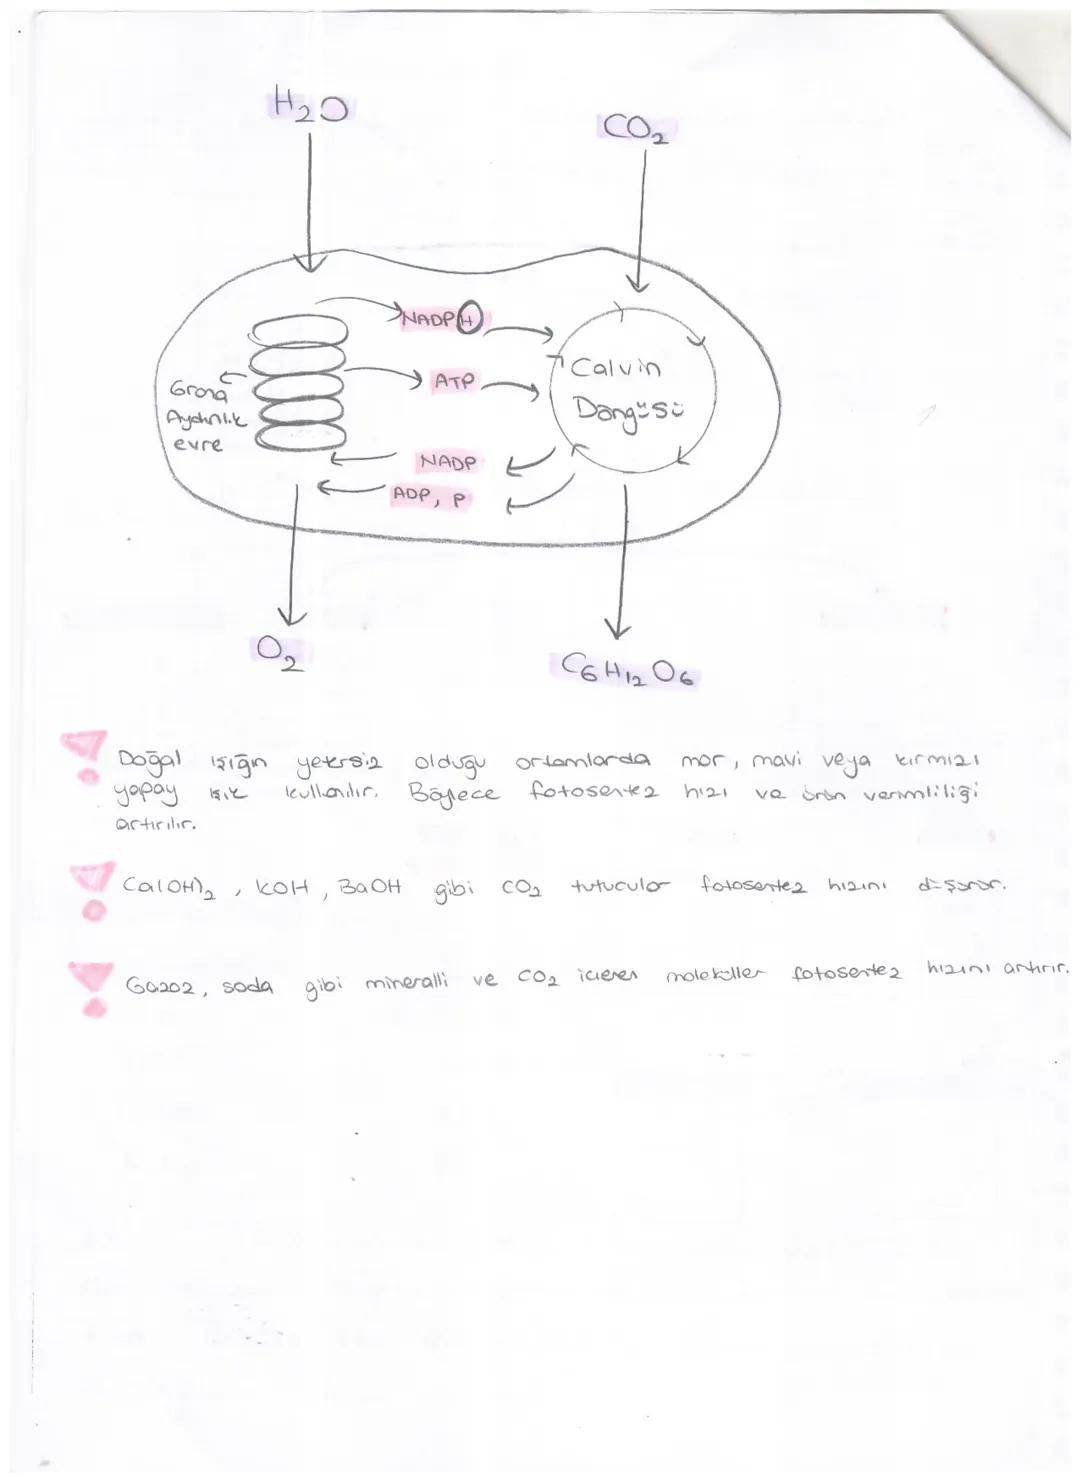 H₂O
CO₂
NADPH
ATP
Calvin
Döngüsü
Grana
Aydınlık
evre
NADP
ADP, P
O₂
C₆H₁₂O₆
Doğal ışığın yetersiz olduğu ortamlarda mor, mavi veya kırmızı
yapay ışık kullanılır. Böylece fotosentez hızı ve ürün verimliliği
artırılır.
Ca(OH)₂, KOH, BaOH gibi CO₂ tutucular fotosentez hızını düşürür.
Gazoz, soda gibi mineralli ve CO₂ içeren moleküller fotosentez hızını artırır.